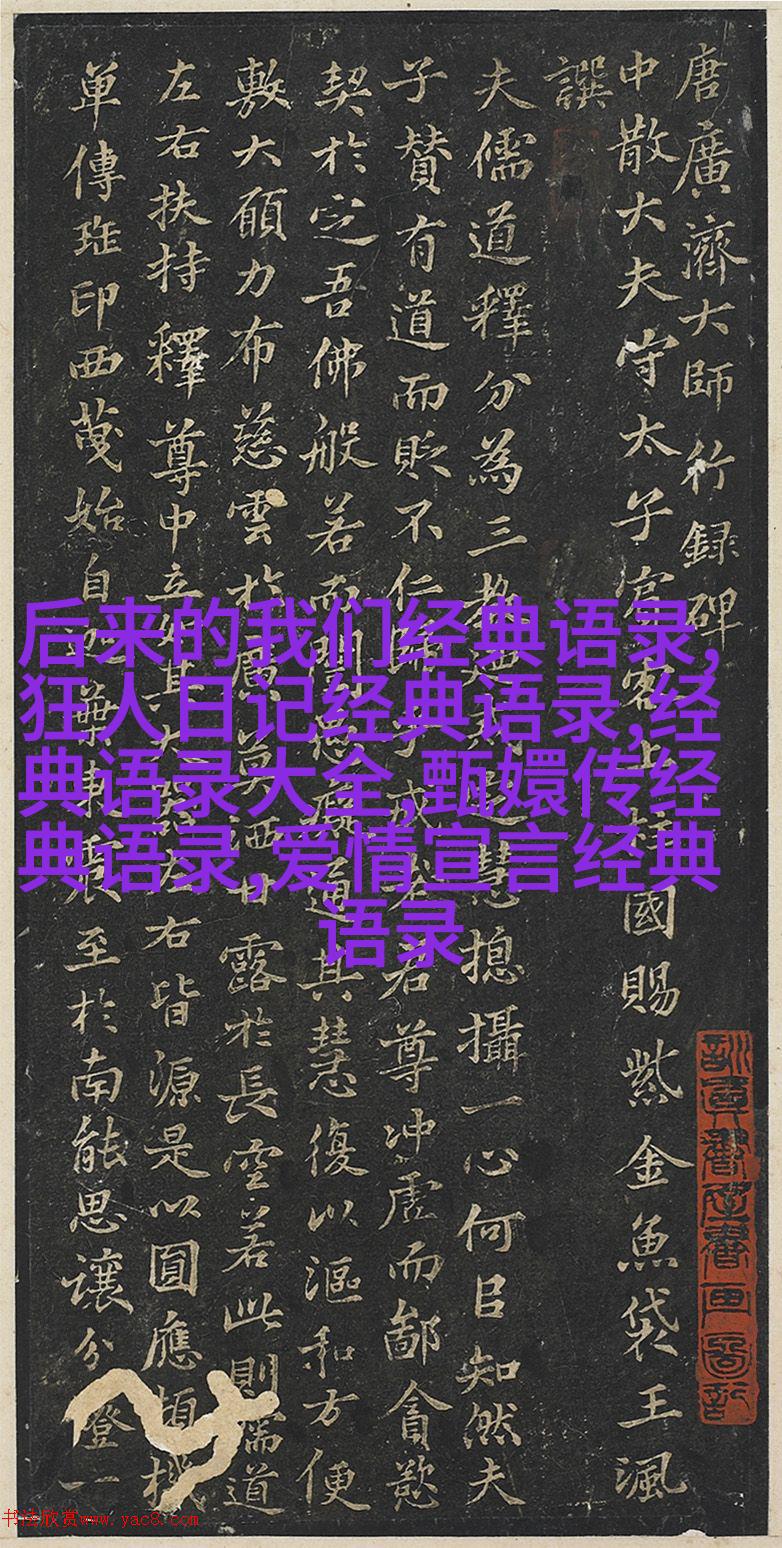 唐廣濟大師行録碑
中散大夫守太子賓客上柱國賜紫金魚袋王渢
譔
夫儒道釋分為三教
慧揔攝一心何㠯知然夫
子贊有道而貶不仁
君尊冲虛而鄙貪慾
契於定吾佛般若而
道其慧復以漚和方便
敷大願力布慈雲於廣莫
露於長空若此則儒道
左右扶持釋尊中立
右皆源是以圓應頓機
單傳班印西𦱤始自
至於南能思讓分燈一
后来的我们经典语录,
狂人日记经典语录,经
典语录大全,甄嬛传经
典语录,爱情宣言经典
语录
书法欣赏www.yac8.com